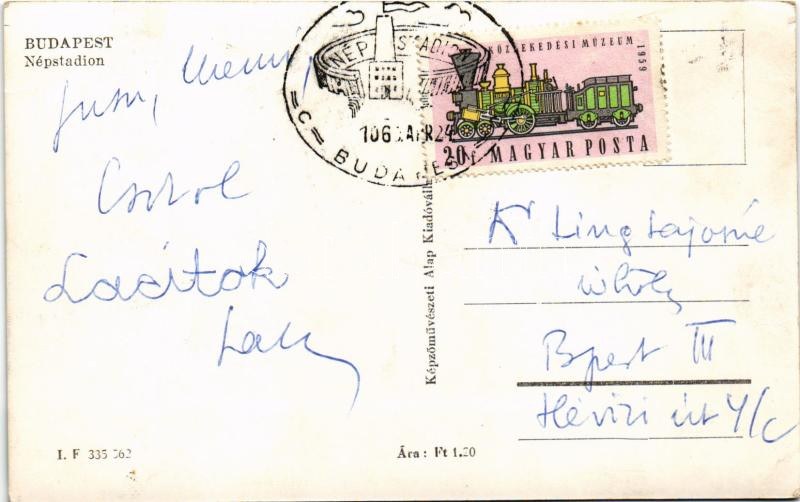 BUDAPEST
Népstadion
Csókol
Lacitok
NÉPSTADION
BUDAPEST
KÖZLEKEDÉSI MÚZEUM 1959
20f MAGYAR POSTA
Képzőművészeti Alap Kiadóváll
K Ling Lajosné
Bpest III
Hévízi út 4/c
I. F 335 562
Ára: Ft 1.20